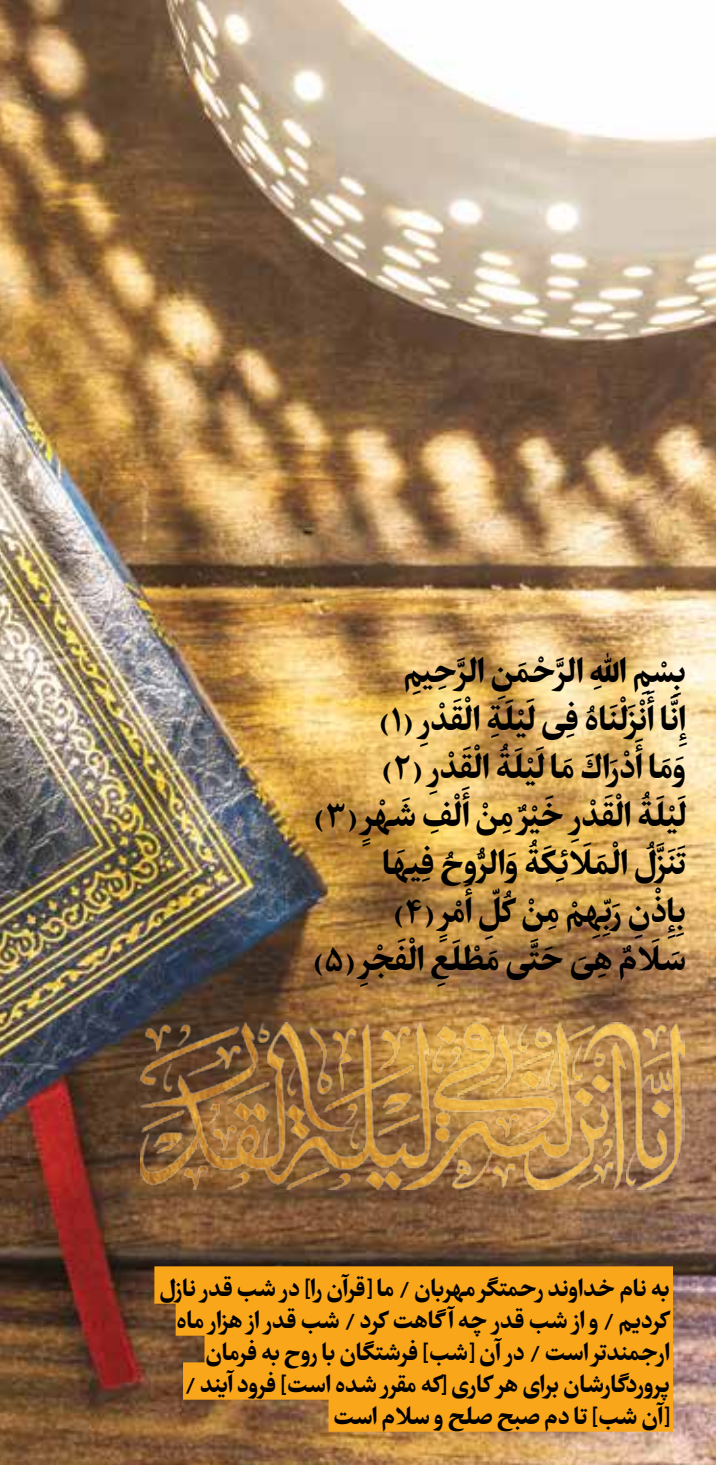 بِسْمِ اللهِ الرَّحْمَنِ الرَّحِيمِ
إِنَّا أَنْزَلْنَاهُ فِی لَيْلَةِ الْقَدْرِ (۱)
وَمَا أَدْرَاكَ مَا لَيْلَةُ الْقَدْرِ (۲)
لَيْلَةُ الْقَدْرِ خَيْرٌ مِنْ أَلْفِ شَهْرٍ (۳)
تَنَزَّلُ الْمَلَائِكَةُ وَالرُّوحُ فِيهَا
بِإِذْنِ رَبِّهِمْ مِنْ كُلِّ أَمْرٍ (۴)
سَلَامٌ هِیَ حَتَّى مَطْلَعِ الْفَجْرِ (۵)
إنّا أنزلنه في ليلة القدر
به نام خداوند رحمتگر مهربان / ما [قرآن را] در شب قدر نازل
کردیم / و از شب قدر چه آگاهت کرد / شب قدر از هزار ماه
ارجمندتر است / در آن [شب] فرشتگان با روح به فرمان
پروردگارشان برای هر کاری [که مقرر شده است] فرود آیند /
[آن شب] تا دم صبح صلح و سلام است